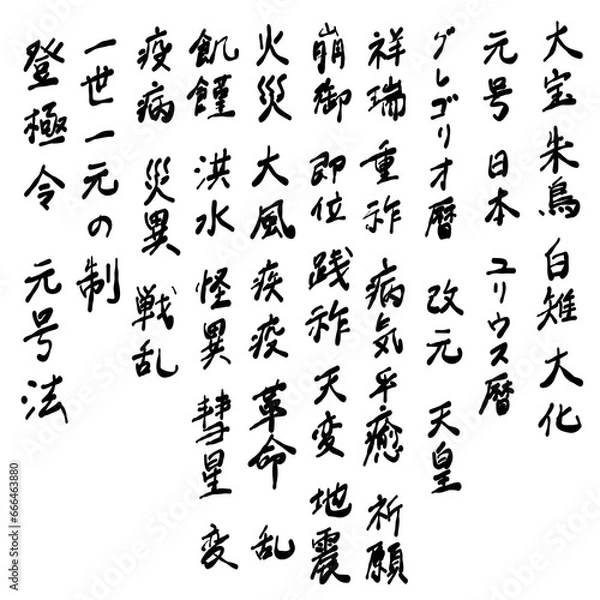 大宝 朱鳥 白雉 大化
元号 日本 ユリウス暦
グレゴリオ暦 改元 天皇
祥瑞 重祚 病気平癒 祈願
崩御 即位 践祚 天変 地震
火災 大風 疾疫 革命 乱
飢饉 洪水 怪異 彗星 変
疫病 災異 戦乱
一世一元の制
登極令 元号法
Adobe Stock | #666463880
Adobe Stock